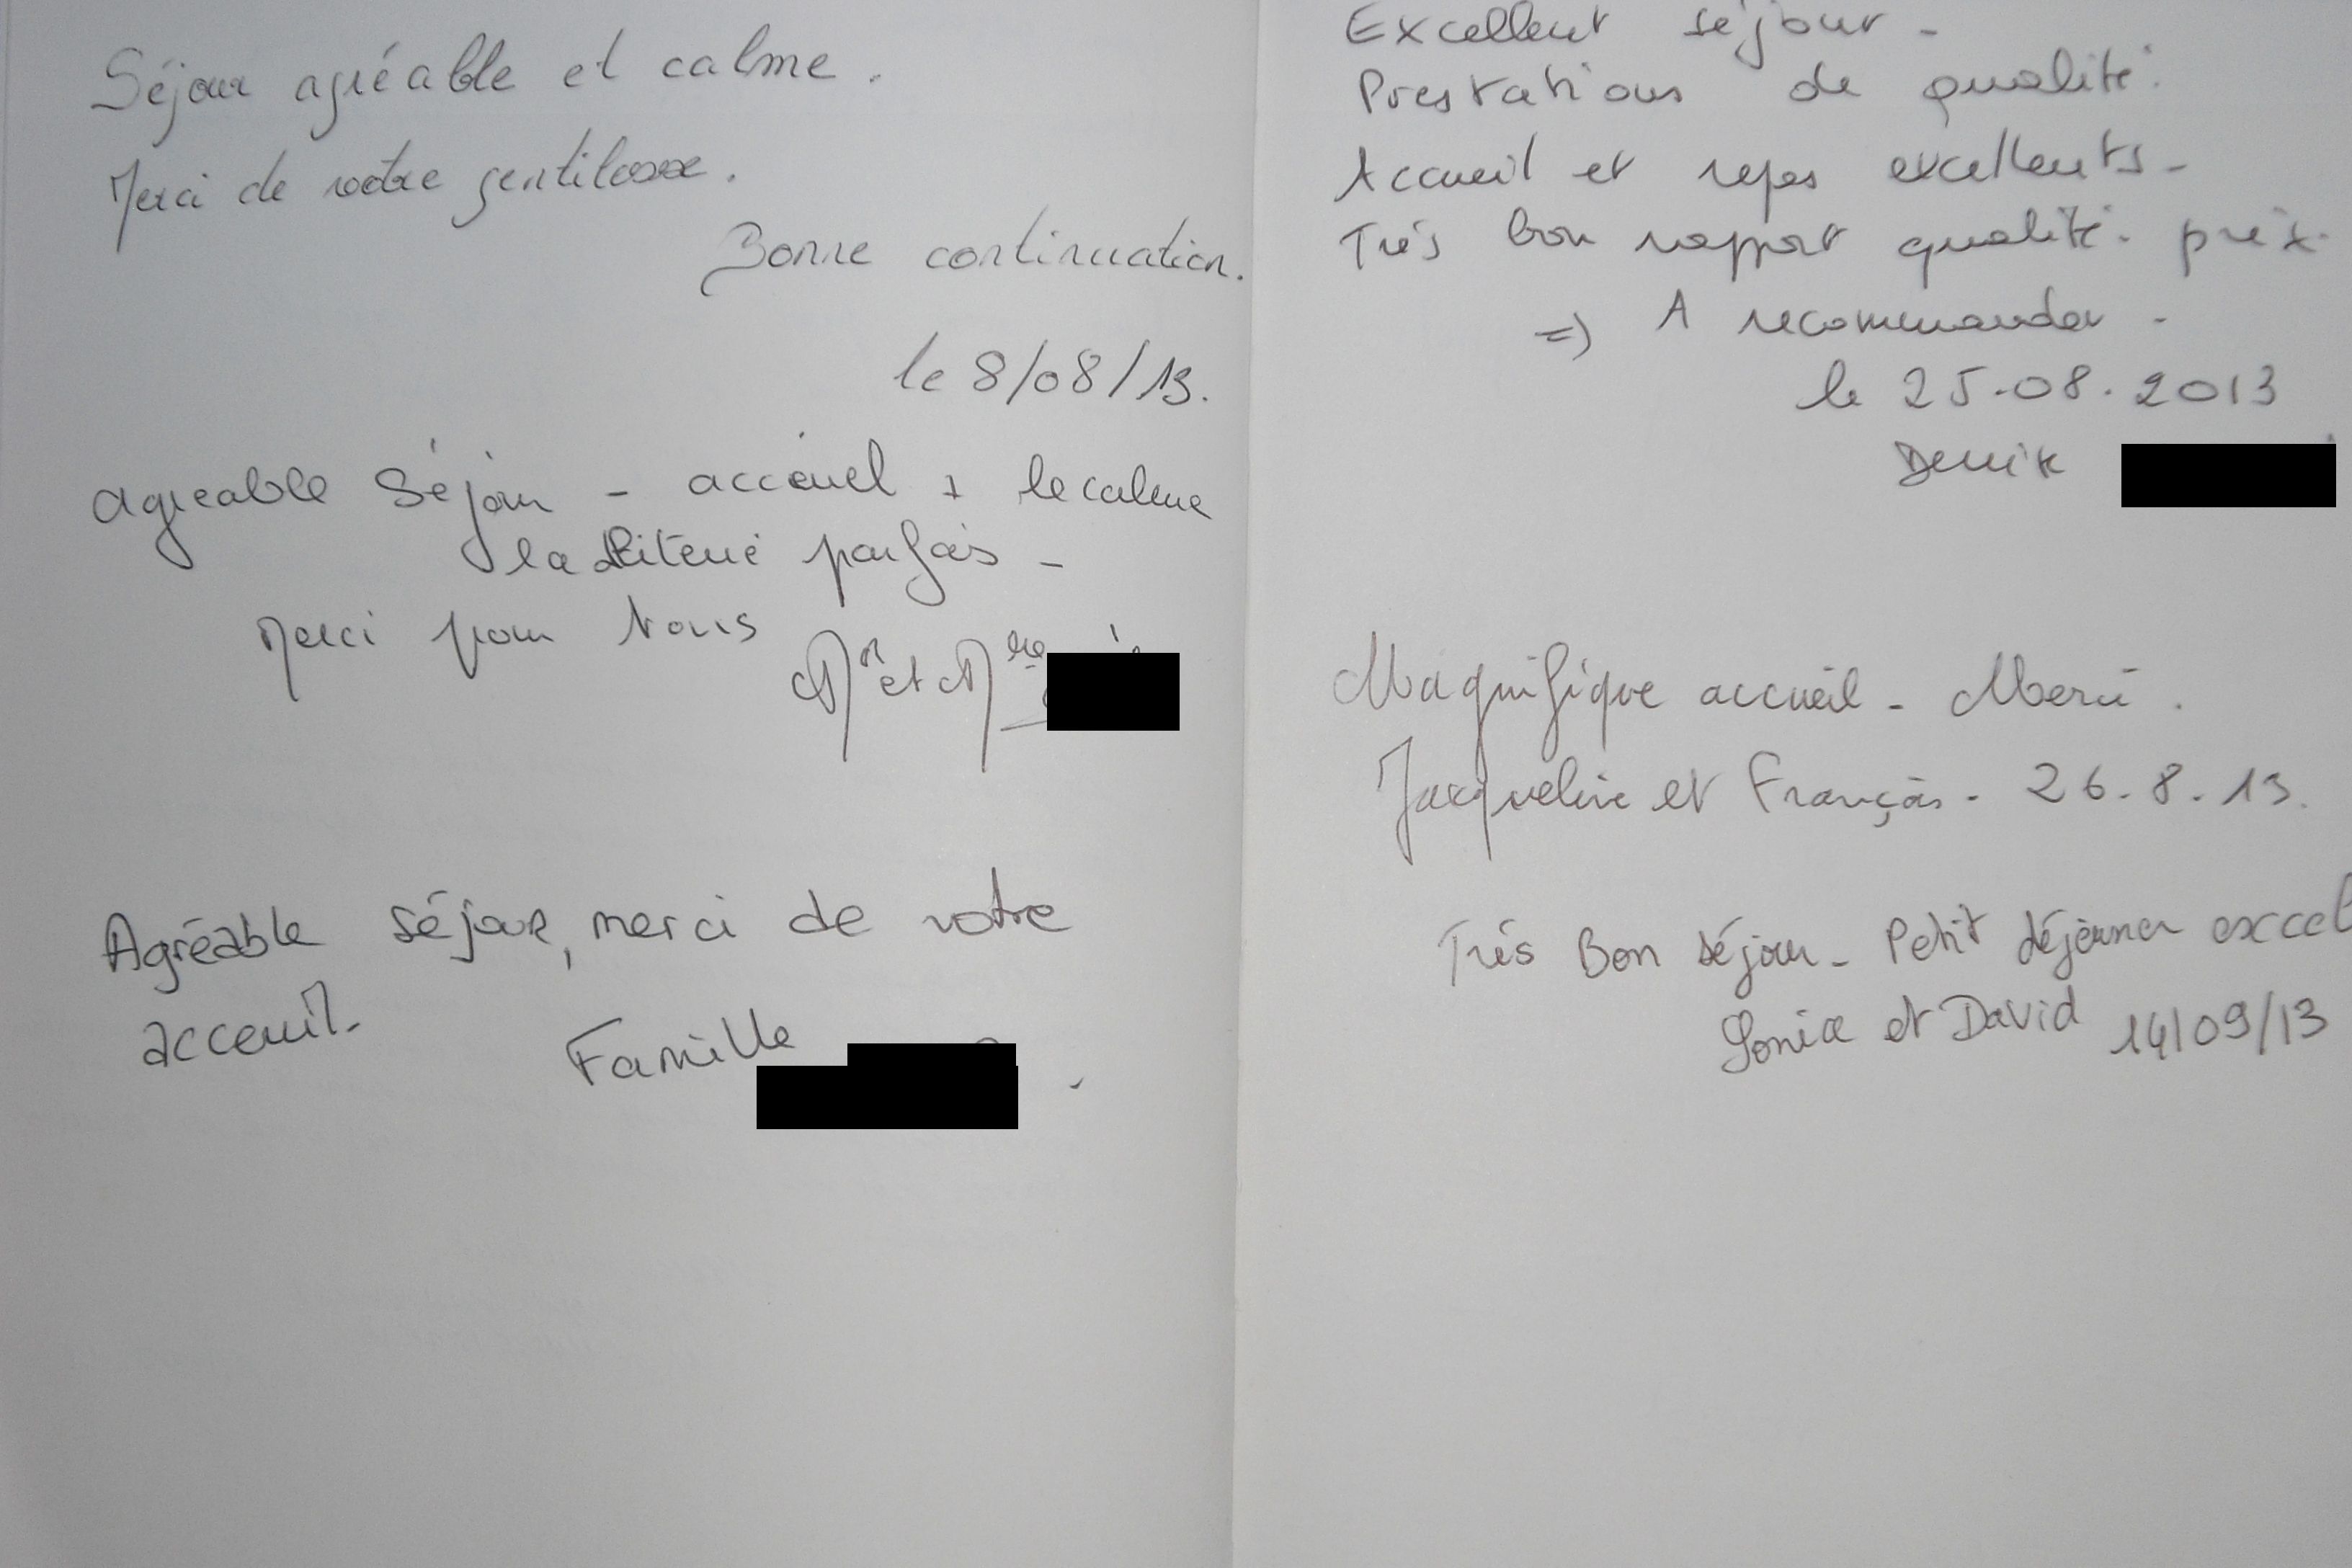 Séjour agréable et calme.
Merci de votre gentilesse.
Bonne continuation.
le 8/08/13.
agreable Séjour - acceuel + le calme
la parfais -
Merci pour Nous
Mr et Mme
Agréable séjour, merci de votre
acceuil.
Famille
Excellent séjour -
Prestations de qualité.
Accueil et repas excellents -
Très bon rapport qualité. prix.
=> A recommander -
le 25.08.2013
Denise
Magnifique accueil - Merci.
Jacqueline et François - 26.8.13.
Très Bon séjour - Petit déjeuner excel
Sonia et David 14/09/13